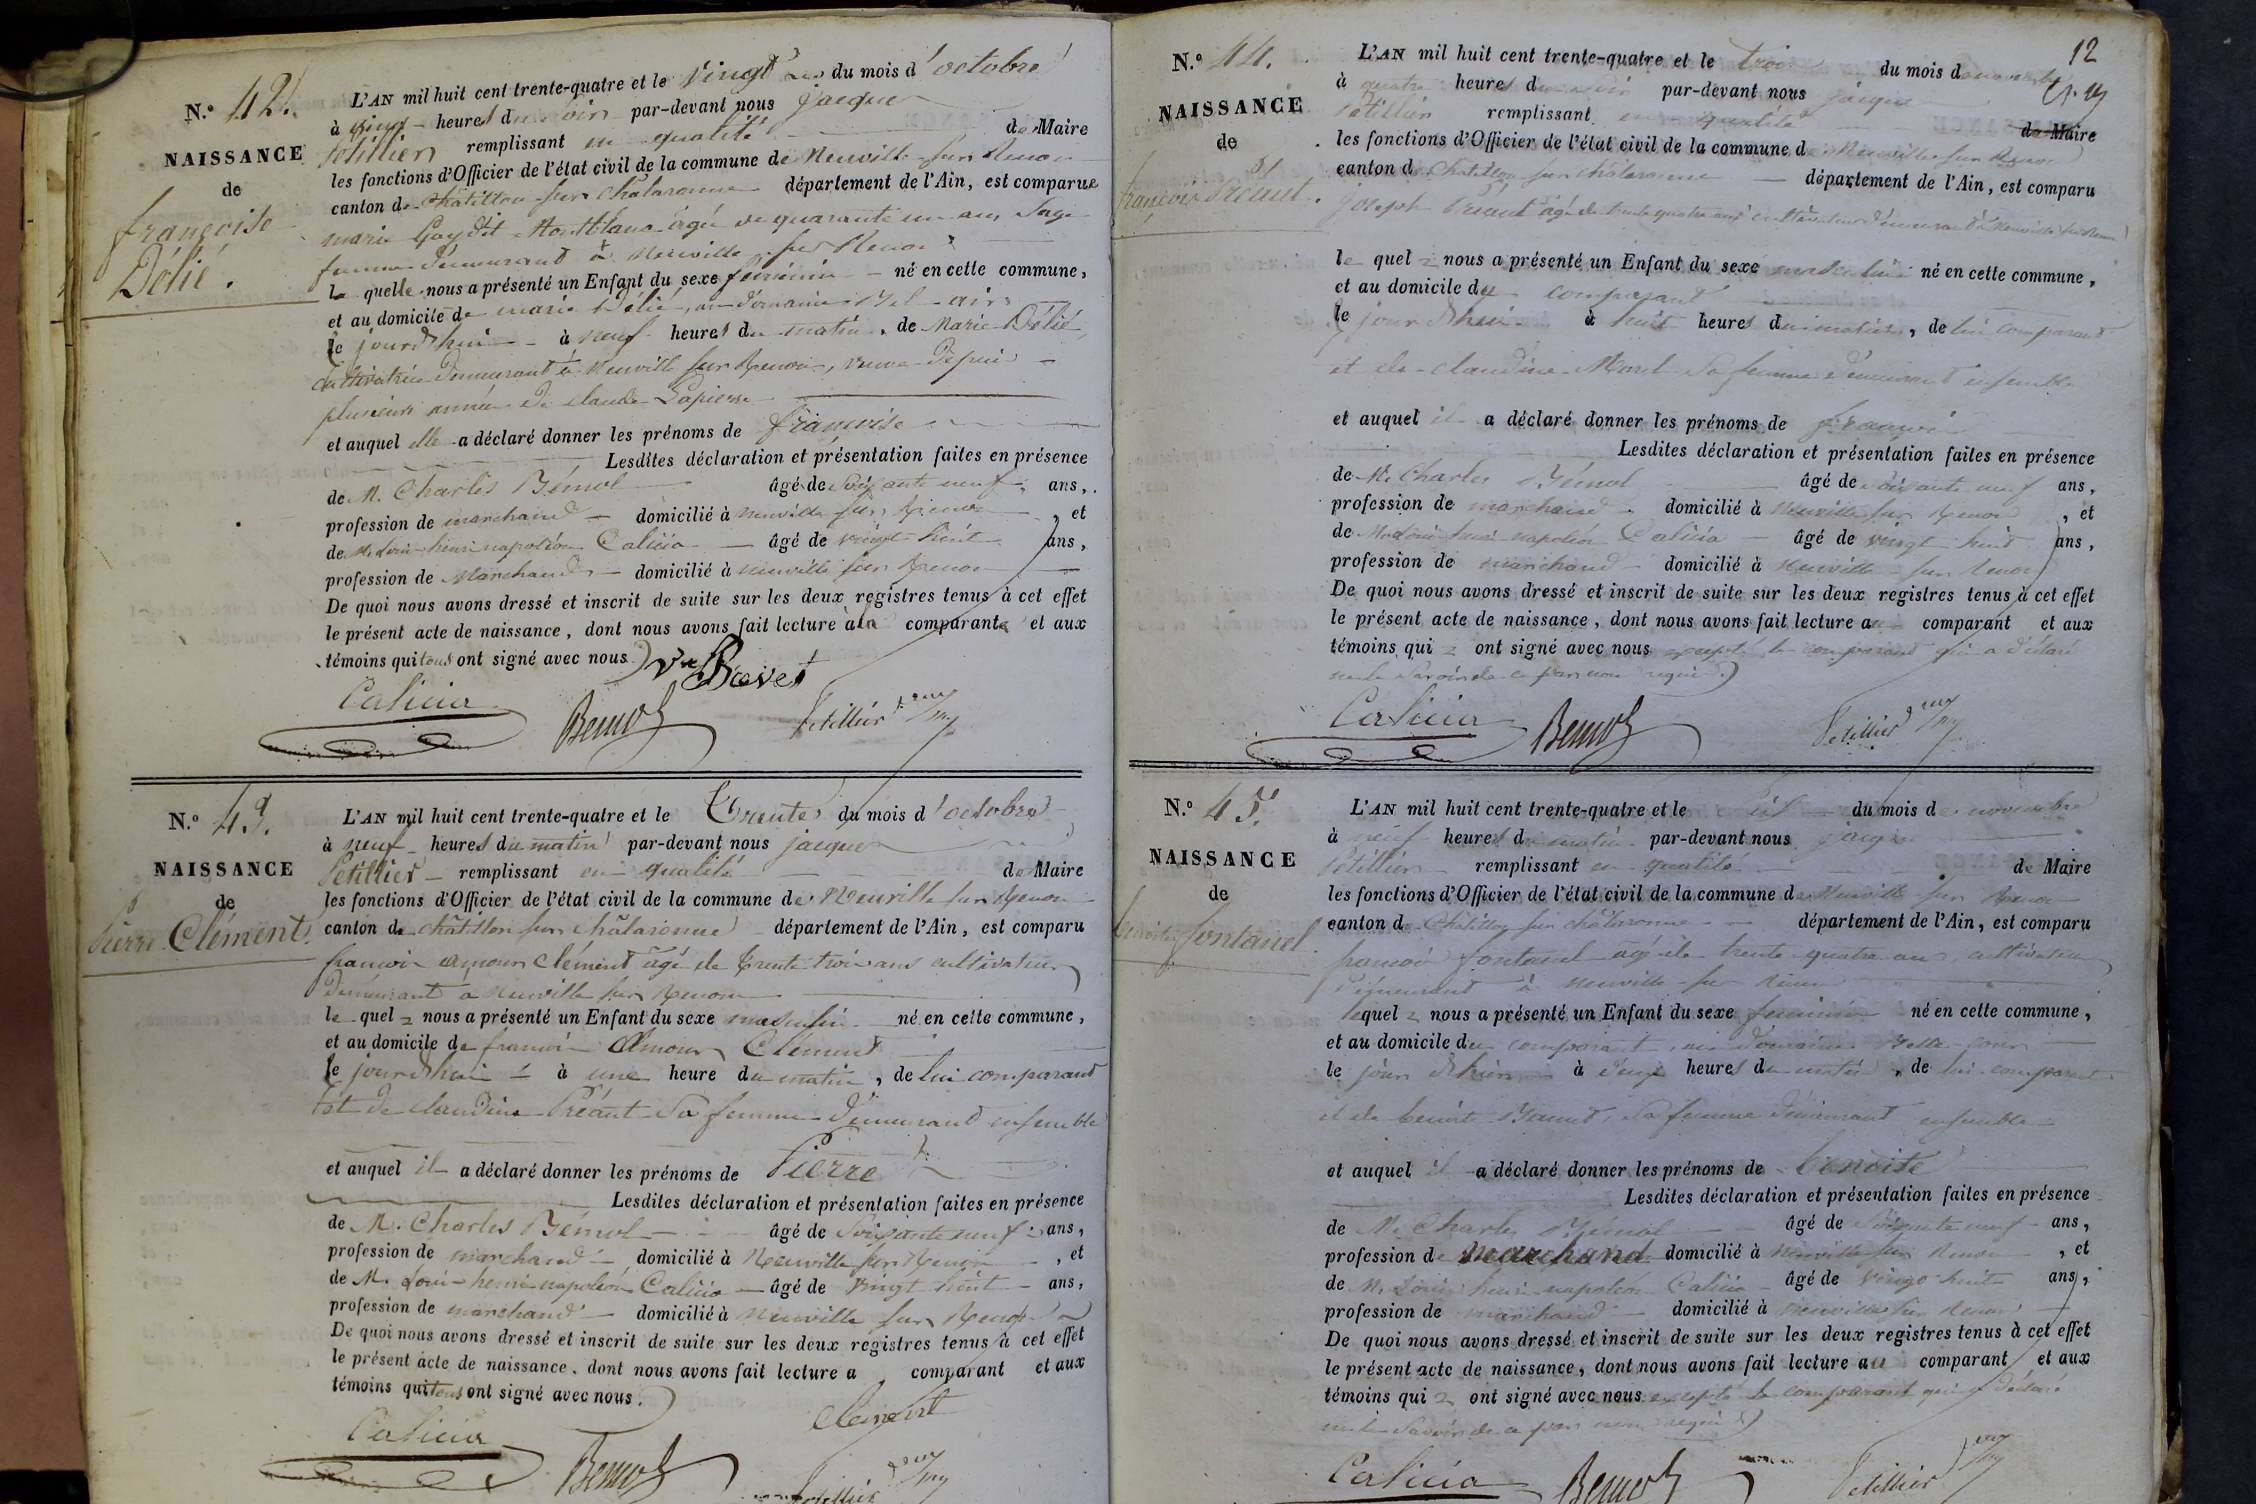 N.o 42.
NAISSANCE
de
françoise
Délié.
L'AN mil huit cent trente-quatre et le vingt du mois d'octobre
à cinq heures du soir par-devant nous jacques
Pétillier remplissant en qualité de Maire
les fonctions d'Officier de l'état civil de la commune de Neuville sur Renon
canton de châtillon sur chalaronne département de l'Ain, est comparue
marie Goyddit Montblanc âgée de quarante un ans Sage
femme demeurant à Neuville sur Renon
la quelle nous a présenté un Enfant du sexe féminin né en cette commune,
et au domicile de marie Délié, au domaine Bel-air
le jourd'hui à neuf heures du matin, de Marie Délié
cultivatrice demeurant à Neuville sur Renon, veuve depuis
plusieurs années de claude Lapierre
et auquel elle a déclaré donner les prénoms de françoise
Lesdites déclaration et présentation faites en présence
de M. Charles Bémol âgé de soixante neuf ans,
profession de marchand domicilié à neuville sur Renon, et
de M. Louis henri napoléon Calicia âgé de vingt-huit ans,
profession de Marchand domicilié à neuville sur Renon
De quoi nous avons dressé et inscrit de suite sur les deux registres tenus à cet effet
le présent acte de naissance, dont nous avons fait lecture à la comparante et aux
témoins qui tous ont signé avec nous
Calicia Bemol Petillier
N.o 43.
NAISSANCE
de
Pierre Clément.
L'AN mil huit cent trente-quatre et le trente du mois d'octobre
à neuf heures du matin par-devant nous jacques
Pétillier remplissant en qualité de Maire
les fonctions d'Officier de l'état civil de la commune de Neuville sur Renon
canton de châtillon sur châlaronne département de l'Ain, est comparu
françois amour clément âgé de trente trois ans cultivateur
demeurant à neuville sur Renon
le quel nous a présenté un Enfant du sexe masculin né en cette commune,
et au domicile de françois Amour Clément
le jourd'hui à une heure du matin, de lui comparant
et de claudine Préant sa femme demeurant ensemble
et auquel il a déclaré donner les prénoms de Pierre
Lesdites déclaration et présentation faites en présence
de M. Charles Bémol âgé de soixante neuf ans,
profession de marchand domicilié à Neuville sur Renon, et
de M. Louis henri napoléon Calicia âgé de vingt huit ans,
profession de marchand domicilié à neuville sur Renon
De quoi nous avons dressé et inscrit de suite sur les deux registres tenus à cet effet
le présent acte de naissance, dont nous avons fait lecture a comparant et aux
témoins qui tous ont signé avec nous.
clement
Calicia Bemol Petillier
12
N.o 44.
NAISSANCE
de
françois Préant.
L'AN mil huit cent trente-quatre et le trois du mois de novembre
à quatre heures du soir par-devant nous jacques
Pétillier remplissant en qualité de Maire
les fonctions d'Officier de l'état civil de la commune de Neuville sur Renon
canton de Châtillon sur châlaronne département de l'Ain, est comparu
joseph Préant âgé de trente quatre ans cultivateur demeurant à Neuville sur Renon
le quel nous a présenté un Enfant du sexe masculin né en cette commune,
et au domicile du comparant
le jourd'hui à huit heures du matin, de lui comparant
et de claudine Morel sa femme demeurant ensemble
et auquel il a déclaré donner les prénoms de françois
Lesdites déclaration et présentation faites en présence
de M. Charles Bémol âgé de soixante neuf ans,
profession de marchand domicilié à Neuville sur Renon, et
de M. Louis henri napoléon Calicia âgé de vingt huit ans,
profession de marchand domicilié à Neuville sur Renon
De quoi nous avons dressé et inscrit de suite sur les deux registres tenus à cet effet
le présent acte de naissance, dont nous avons fait lecture au comparant et aux
témoins qui ont signé avec nous excepté le comparant qui a déclaré
ne le savoir de ce par nous requis
Calicia Bemol Petillier
N.o 45.
NAISSANCE
de
benoite fontanel
L'AN mil huit cent trente-quatre et le du mois de novembre
à neuf heures du matin par-devant nous jacques
Pétillier remplissant en qualité de Maire
les fonctions d'Officier de l'état civil de la commune de Neuville sur Renon
canton de Châtillon sur châlaronne département de l'Ain, est comparu
françois fontanel âgé de trente quatre ans, cultivateur
demeurant à neuville sur Renon
lequel nous a présenté un Enfant du sexe féminin né en cette commune,
et au domicile du comparant, au domaine Belle-cour
le jourd'hui à deux heures du matin, de lui comparant
et de benoite sa femme demeurant ensemble
et auquel il a déclaré donner les prénoms de benoite
Lesdites déclaration et présentation faites en présence
de M. Charles Bémol âgé de soixante neuf ans,
profession de marchand domicilié à Neuville sur Renon, et
de M. Louis henri napoléon Calicia âgé de vingt-huit ans,
profession de marchand domicilié à Neuville sur Renon
De quoi nous avons dressé et inscrit de suite sur les deux registres tenus à cet effet
le présent acte de naissance, dont nous avons fait lecture au comparant et aux
témoins qui ont signé avec nous excepté le comparant qui a déclaré
ne le savoir de ce par nous requis
Calicia Bemol Petillier